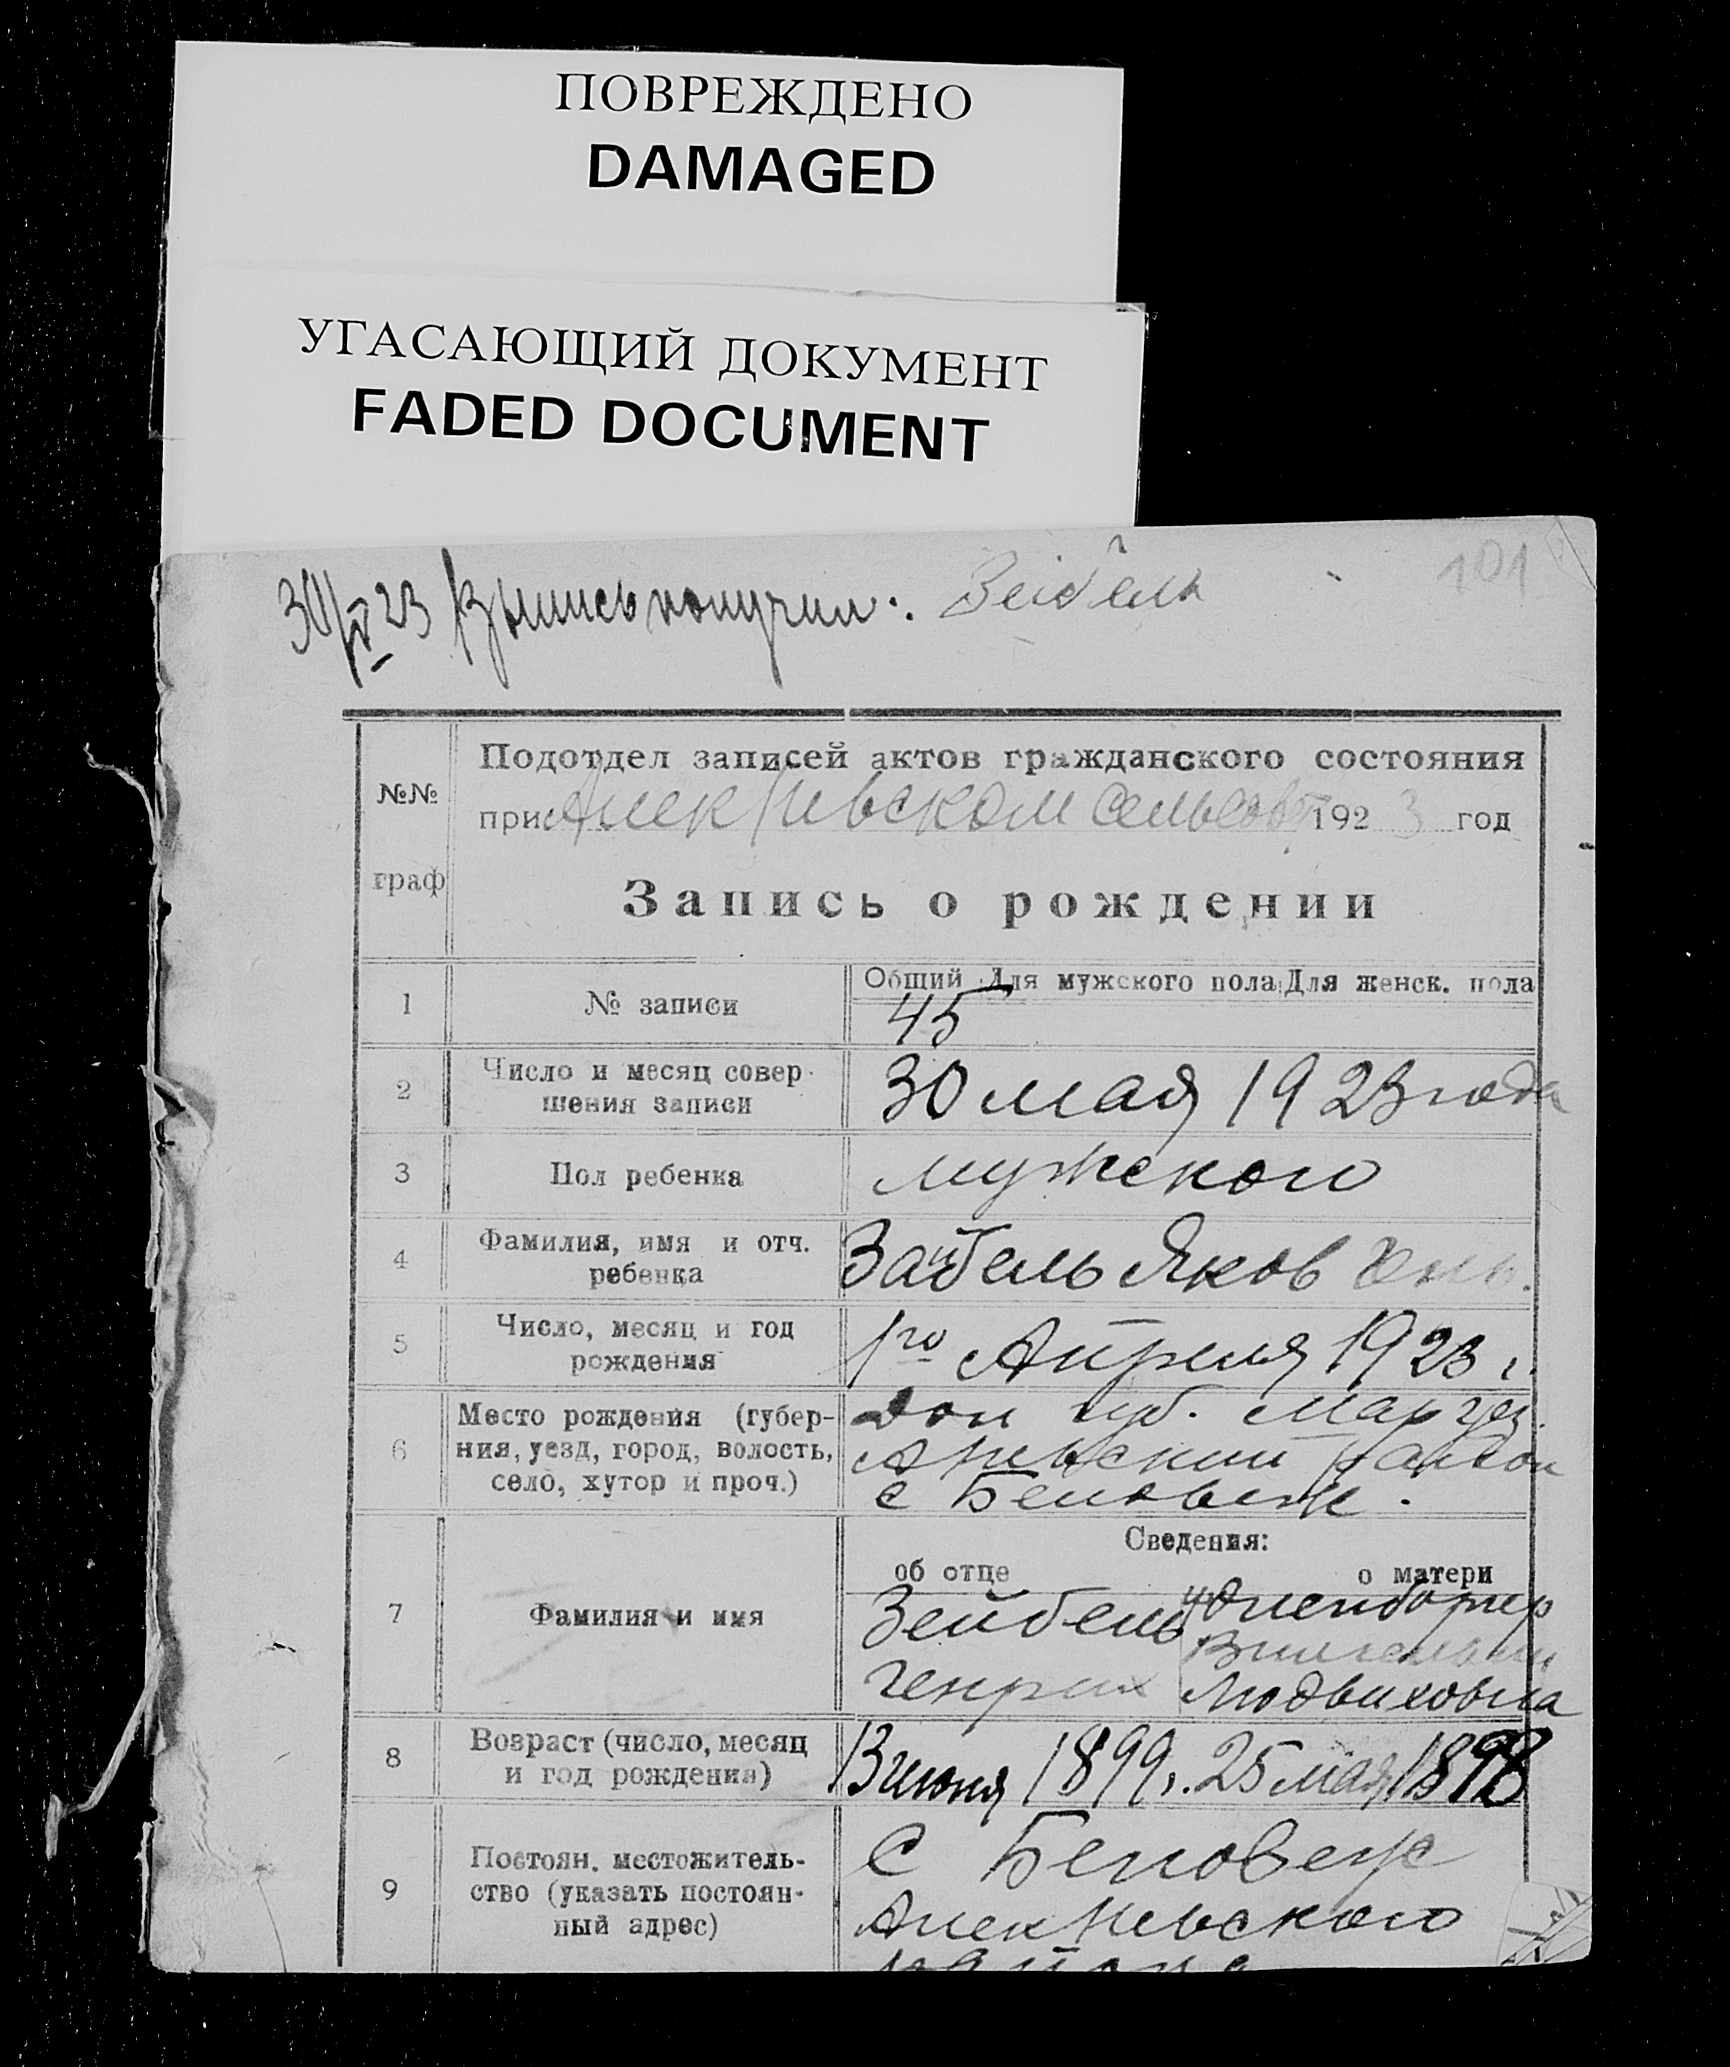 ПОВРЕЖДЕНО
DAMAGED
УГАСАЮЩИЙ ДОКУМЕНТ
FADED DOCUMENT
101
30/V 23 Выпись получил: Зейбель
№№ граф
Подотдел записей актов гражданского состояния
при Алек Невском сельсов 1923 год
Запись о рождении
1 № записи
Общий Для мужского пола Для женск. пола
45
2 Число и месяц совер-
шения записи
30 мая 1923 года
3 Пол ребенка
мужского
4 Фамилия, имя и отч.
ребенка
Зайбель Яков
5 Число, месяц и год
рождения
1го Апреля 1923 г.
6 Место рождения (губер-
ния, уезд, город, волость,
село, хутор и проч.)
Дон губ. Мар уез.
А Невский район
с Беловеж.
Сведения:
об отце
о матери
7 Фамилия и имя
Зейбель
Генрих
Людвиховна
8 Возраст (число, месяц
и год рождения)
13 июня 1899 г. 25 мая 1898
9 Постоян. местожитель-
ство (указать постоян-
ный адрес)
С Беловеж
Алек Невского
района